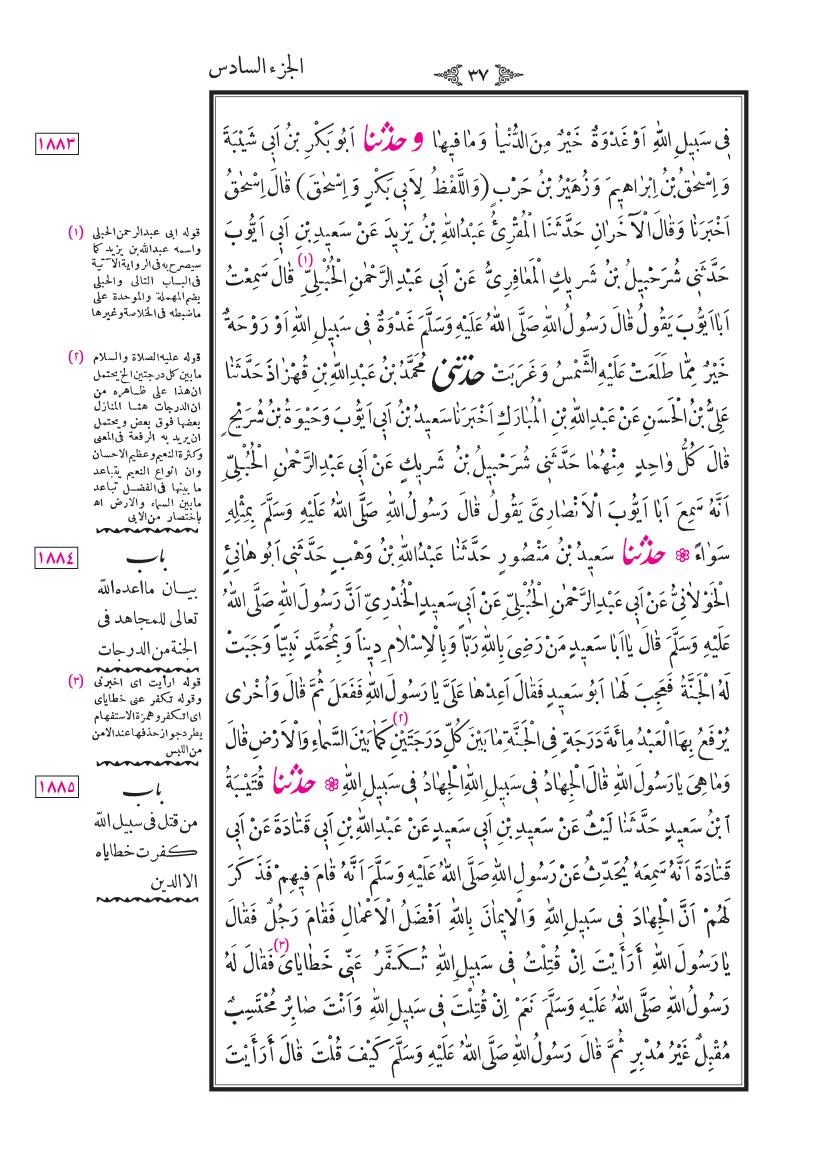 الجزء السادس
٣٧
فِى سَبِيلِ اللّٰهِ اَوْ غَدْوَةٌ خَيْرٌ مِنَ الدُّنْيَا وَمَا فِيهَا وَحَدَّثَنَا اَبُو بَكْرِ بْنُ اَبِى شَيْبَةَ
وَاِسْحٰقُ بْنُ اِبْرَاهِيمَ وَزُهَيْرُ بْنُ حَرْبٍ (وَاللَّفْظُ لِاَبِى بَكْرٍ وَاِسْحٰقَ) قَالَ اِسْحٰقُ
اَخْبَرَنَا وَقَالَ الْآخَرَانِ حَدَّثَنَا الْمُقْرِئُ عَبْدُاللّٰهِ بْنُ يَزِيدَ عَنْ سَعِيدِ بْنِ اَبِى اَيُّوبَ
حَدَّثَنِى شُرَحْبِيلُ بْنُ شَرِيكٍ الْمَعَافِرِىُّ عَنْ اَبِى عَبْدِ الرَّحْمٰنِ الْحُبُلِىِّ (١) قَالَ سَمِعْتُ
اَبَا اَيُّوبَ يَقُولُ قَالَ رَسُولُ اللّٰهِ صَلَّى اللّٰهُ عَلَيْهِ وَسَلَّمَ غَدْوَةٌ فِى سَبِيلِ اللّٰهِ اَوْ رَوْحَةٌ
خَيْرٌ مِمَّا طَلَعَتْ عَلَيْهِ الشَّمْسُ وَغَرَبَتْ حَدَّثَنِى مُحَمَّدُ بْنُ عَبْدِ اللّٰهِ بْنِ قُهْزَاذَ حَدَّثَنَا
عَلِىُّ بْنُ الْحَسَنِ عَنْ عَبْدِ اللّٰهِ بْنِ الْمُبَارَكِ اَخْبَرَنَا سَعِيدُ بْنُ اَبِى اَيُّوبَ وَحَيْوَةُ بْنُ شُرَيْحٍ
قَالَ كُلُّ وَاحِدٍ مِنْهُمَا حَدَّثَنِى شُرَحْبِيلُ بْنُ شَرِيكٍ عَنْ اَبِى عَبْدِ الرَّحْمٰنِ الْحُبُلِىِّ
اَنَّهُ سَمِعَ اَبَا اَيُّوبَ الْاَنْصَارِىَّ يَقُولُ قَالَ رَسُولُ اللّٰهِ صَلَّى اللّٰهُ عَلَيْهِ وَسَلَّمَ بِمِثْلِهِ
سَوَاءً ❁ حَدَّثَنَا سَعِيدُ بْنُ مَنْصُورٍ حَدَّثَنَا عَبْدُ اللّٰهِ بْنُ وَهْبٍ حَدَّثَنِى اَبُو هَانِئٍ
الْخَوْلَانِىُّ عَنْ اَبِى عَبْدِ الرَّحْمٰنِ الْحُبُلِىِّ عَنْ اَبِى سَعِيدٍ الْخُدْرِىِّ اَنَّ رَسُولَ اللّٰهِ صَلَّى اللّٰهُ
عَلَيْهِ وَسَلَّمَ قَالَ يَا اَبَا سَعِيدٍ مَنْ رَضِىَ بِاللّٰهِ رَبّاً وَبِالْاِسْلَامِ دِيناً وَبِمُحَمَّدٍ نَبِيّاً وَجَبَتْ
لَهُ الْجَنَّةُ فَعَجِبَ لَهَا اَبُو سَعِيدٍ فَقَالَ اَعِدْهَا عَلَىَّ يَا رَسُولَ اللّٰهِ فَفَعَلَ ثُمَّ قَالَ وَاُخْرَى
يُرْفَعُ بِهَا الْعَبْدُ مِائَةَ دَرَجَةٍ فِى الْجَنَّةِ مَا بَيْنَ كُلِّ دَرَجَتَيْنِ (٢) كَمَا بَيْنَ السَّمَاءِ وَالْاَرْضِ قَالَ
وَمَا هِىَ يَا رَسُولَ اللّٰهِ قَالَ الْجِهَادُ فِى سَبِيلِ اللّٰهِ الْجِهَادُ فِى سَبِيلِ اللّٰهِ ❁ حَدَّثَنَا قُتَيْبَةُ
ابْنُ سَعِيدٍ حَدَّثَنَا لَيْثٌ عَنْ سَعِيدِ بْنِ اَبِى سَعِيدٍ عَنْ عَبْدِ اللّٰهِ بْنِ اَبِى قَتَادَةَ عَنْ اَبِى
قَتَادَةَ اَنَّهُ سَمِعَهُ يُحَدِّثُ عَنْ رَسُولِ اللّٰهِ صَلَّى اللّٰهُ عَلَيْهِ وَسَلَّمَ اَنَّهُ قَامَ فِيهِمْ فَذَكَرَ
لَهُمْ اَنَّ الْجِهَادَ فِى سَبِيلِ اللّٰهِ وَالْاِيمَانَ بِاللّٰهِ اَفْضَلُ الْاَعْمَالِ فَقَامَ رَجُلٌ فَقَالَ
يَا رَسُولَ اللّٰهِ اَرَأَيْتَ اِنْ قُتِلْتُ فِى سَبِيلِ اللّٰهِ تُكَفَّرُ عَنِّى خَطَايَاىَ (٣) فَقَالَ لَهُ
رَسُولُ اللّٰهِ صَلَّى اللّٰهُ عَلَيْهِ وَسَلَّمَ نَعَمْ اِنْ قُتِلْتَ فِى سَبِيلِ اللّٰهِ وَاَنْتَ صَابِرٌ مُحْتَسِبٌ
مُقْبِلٌ غَيْرُ مُدْبِرٍ ثُمَّ قَالَ رَسُولُ اللّٰهِ صَلَّى اللّٰهُ عَلَيْهِ وَسَلَّمَ كَيْفَ قُلْتَ قَالَ اَرَأَيْتَ
١٨٨٣
(١) قوله ابى عبدالرحمن الحبلى
واسمه عبدالله بن يزيد كما
سيصرح به فى الرواية الآتية
فى الباب التالى والحبلى
بضم المهملة والموحدة على
ما ضبطه فى الخلاصة وغيرها
(٢) قوله عليه الصلاة والسلام
ما بين كل درجتين الخ يحتمل
ان هذا على ظاهره من
ان الدرجات هنا المنازل
بعضها فوق بعض ويحتمل
ان يريد به الرفعة فى المعنى
وكثرة النعيم وعظيم الاحسان
وان انواع النعيم يتباعد
ما بينها فى الفضل تباعد
ما بين السماء والارض اه
باختصار من الابى
١٨٨٤
باب
بيان ما اعده الله
تعالى للمجاهد فى
الجنة من الدرجات
(٣) قوله ارأيت اى اخبرنى
وقوله تكفر عنى خطاياى
اى اتكفر وهمزة الاستفهام
يطرد جواز حذفها عند الامن
من اللبس
١٨٨٥
باب
من قتل فى سبيل الله
كفرت خطاياه
الا الدين